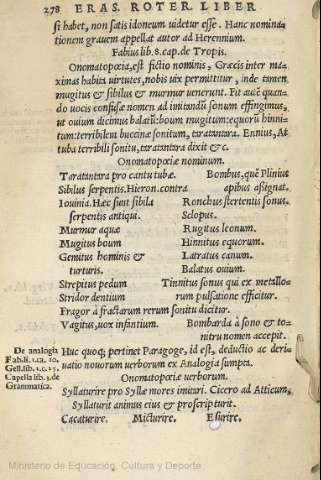 278 ERAS. ROTER. LIBER
si habet, non satis idoneum uidetur esse. Hanc nomina=
tionem grauem appellat autor ad Herennium.
Fabius lib. 8. cap. de Tropis.
Onomatopœia, est fictio nominis, Græcis inter ma=
ximas habita uirtutes, nobis uix permittitur, inde tamen
mugitus & sibilus & murmur uenerunt. Fit autē quan=
do uocis confusæ nomen ad imitandū sonum effingimus,
ut ouium dicimus balatū: boum mugitum: equorū hinni=
tum: terribilem buccinæ sonitum, taratantara. Ennius, At
tuba terribili sonitu, taratantara dixit & c.
Onomatopœiæ nominum.
Taratantara pro cantu tubæ. Bombus, quē Plinius
Sibilus serpentis. Hieron. contra apibus aßignat.
Iouinia. Hæc sunt sibila Ronchus stertentis sonus.
serpentis antiqui. Sclopus.
Murmur aquæ Rugitus leonum.
Mugitus boum Hinnitus equorum.
Gemitus hominis & Latratus canum.
turturis. Balatus ouium.
Strepitus pedum Tinnitus sonus qui ex metallo=
Stridor dentium rum pulsatione efficitur.
Fragor à fractarum rerum sonitu dicitur.
Vagitus, uox infantium. Bombarda à sono & to=
nitru nomen accepit.
De analogia
Fabi. li. 1. ca. 10.
Gell. lib. 2. c. 25.
Capella lib. 3. de
Grammatica.
Huc quoq; pertinet Paragoge, id est, deductio ac deri=
uatio nouorum uerborum ex Analogia sumpta.
Onomatopœiæ uerborum.
Syllaturire pro Syllæ mores imitari. Cicero ad Atticum,
Syllaturit animus eius & proscripturit.
Cacaturire. Micturire. Esurire.
Ministerio de Educación, Cultura y Deporte